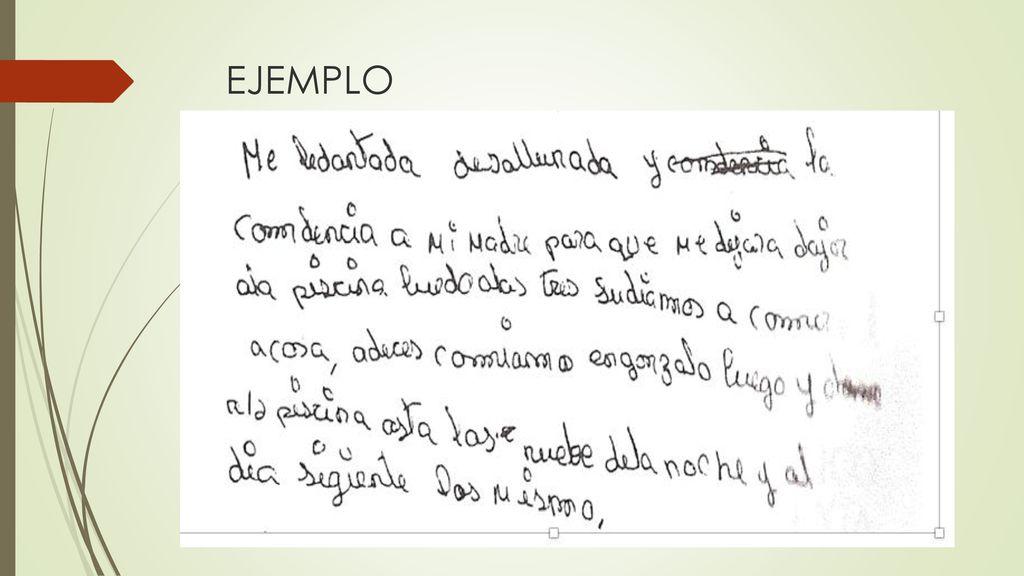 EJEMPLO
Me ledantada desallunada y la
comdencia a mi madre para que me dejara dajar
ala piscina luedo alas tres sudiamos a comer
acosa, adeces comiamo engonzalo luego y
ala piscina asta las nuebe dela noche y al
dia sigiente Dos mismo,